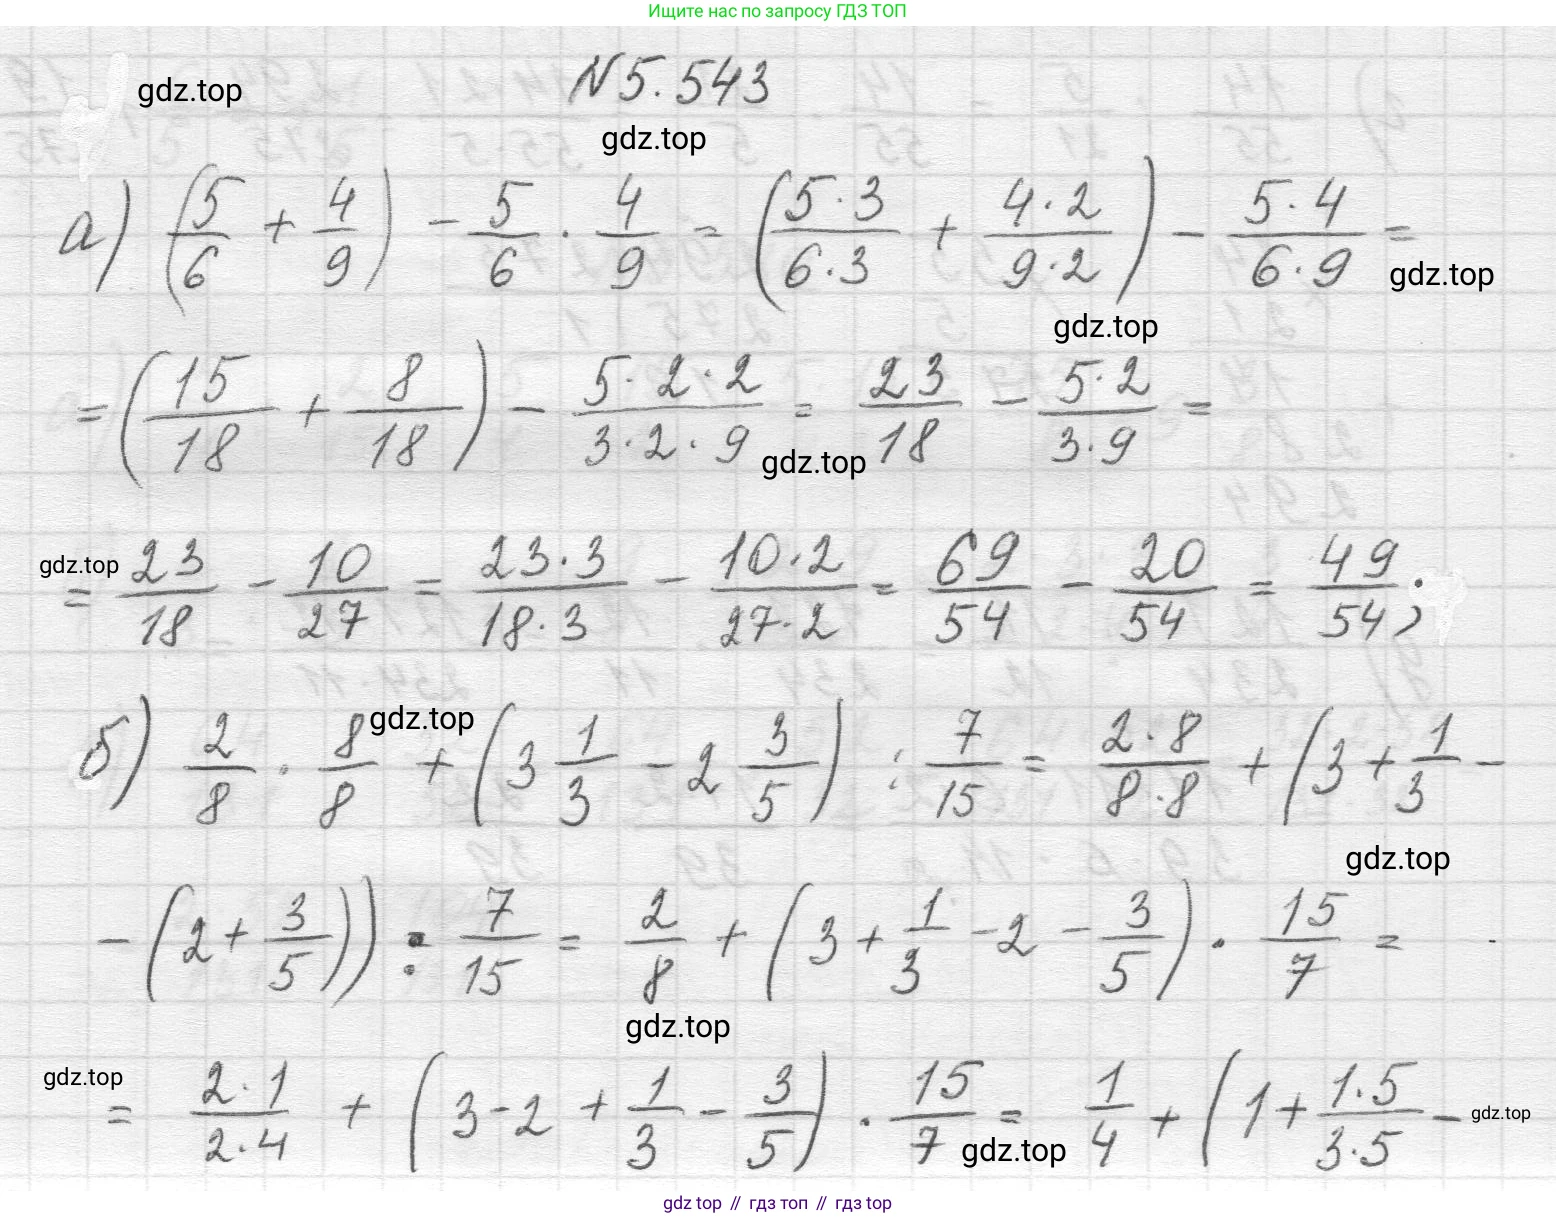 Ищите нас по запросу ГДЗ ТОП
gdz.top
N 5.543
gdz.top
а) (5/6 + 4/9) - 5/6 · 4/9 = (5·3/6·3 + 4·2/9·2) - 5·4/6·9 =
gdz.top
gdz.top
= (15/18 + 8/18) - 5·2·2/3·2·9 = 23/18 - 5·2/3·9 =
gdz.top
gdz.top
= 23/18 - 10/27 = 23·3/18·3 - 10·2/27·2 = 69/54 - 20/54 = 49/54;
gdz.top
б) 2/8 · 8/8 + (3 1/3 - 2 3/5) : 7/15 = 2·8/8·8 + (3 + 1/3 -
gdz.top
- (2 + 3/5)) : 7/15 = 2/8 + (3 + 1/3 - 2 - 3/5) · 15/7 =
gdz.top
gdz.top
= 2·1/2·4 + (3 - 2 + 1/3 - 3/5) · 15/7 = 1/4 + (1 + 1·5/3·5 -
gdz.top
gdz.top
gdz top // гдз топ // гдз top